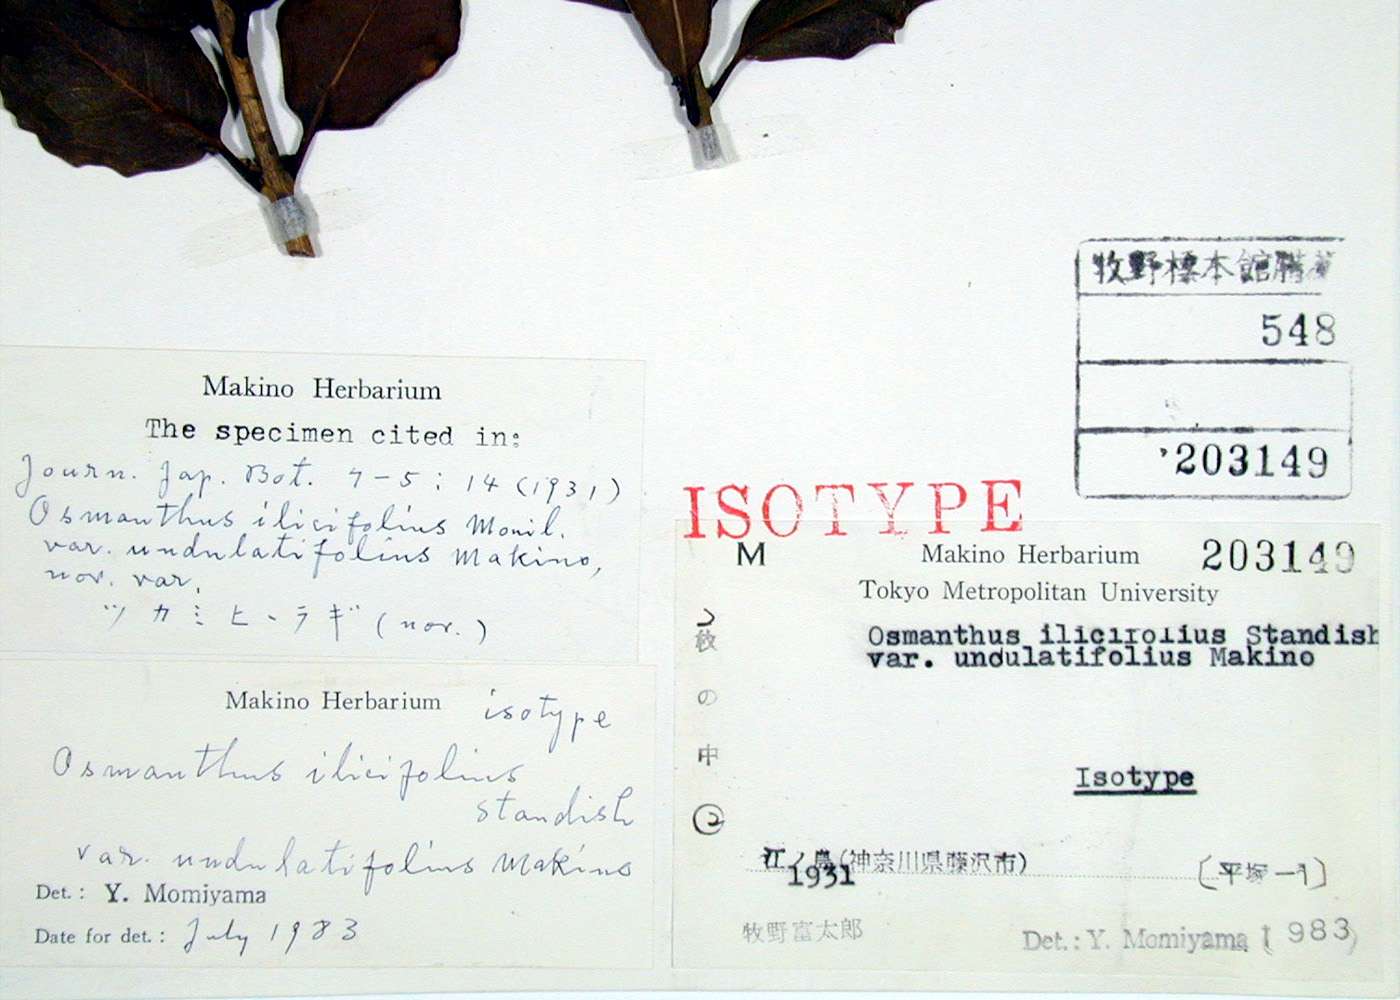 牧野標本館購
548
203149
Makino Herbarium
The specimen cited in:
Journ. Jap. Bot. 7-5: 14 (1931)
Osmanthus ilicifolius Mouil.
var. undulatifolius Makino,
nov. var.
ツカミヒヽラギ (nov.)
Makino Herbarium isotype
Osmanthus ilicifolius
Standish
var. undulatifolius Makino
Det.: Y. Momiyama
Date for det.: July 1983
ISOTYPE
M Makino Herbarium 203149
Tokyo Metropolitan University
Osmanthus ilicifolius Standish
var. undulatifolius Makino
枚の中②
Isotype
江ノ島(神奈川県藤沢市)
1931
〔平塚一1〕
牧野富太郎
Det.: Y. Momiyama (1983)